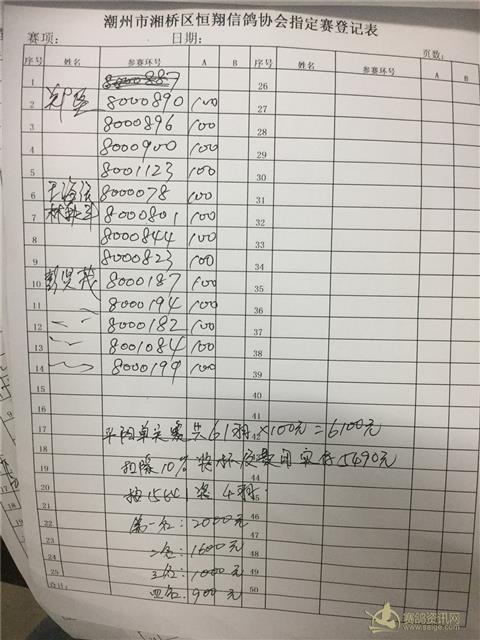 潮州市湘桥区恒翔信鸽协会指定赛登记表
赛项: 日期: 页数:
序号 姓名 参赛环号 A B 序号 姓名 参赛环号 A B
1 8000887 26
2 8000890 100 27
3 8000896 100 28
4 8000900 100 29
5 8001123 100 30
6 8000078 100 31
7 8000801 100 32
8 8000844 100 33
9 8000823 100 34
10 8000187 100 35
11 8000194 100 36
12 8000182 100 37
13 8001084 100 38
14 8000199 100 39
15 40
16 41
17 平均单关赛共61羽×100元=6100元 42
18 43
19 扣除10%奖杯及费用实存5490元 44
20 45
21 奖4羽. 46
22 第一名:2000元 47
23 二名:1600元 48
24 三名:1000元 49
25 四名:900元 50
合计:
赛鸽资讯网
www.saige.com